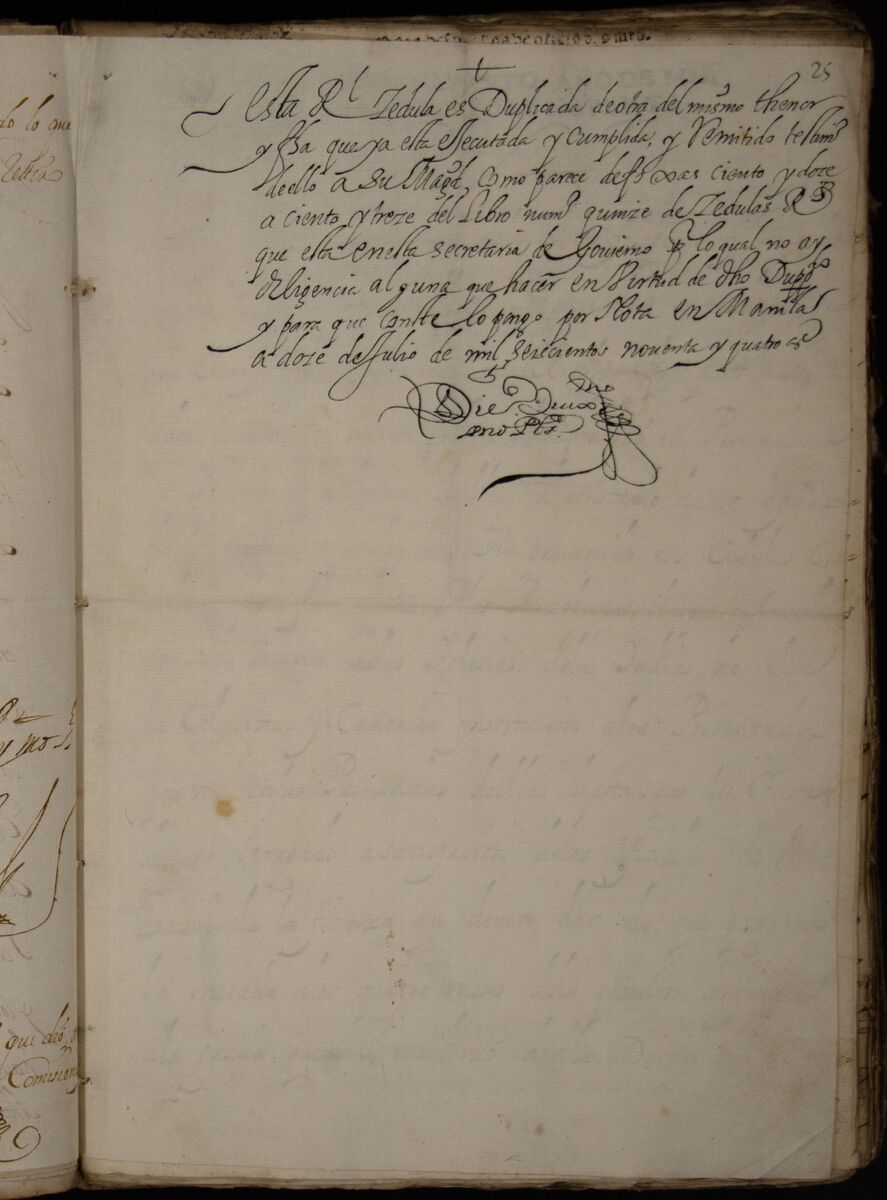 25
Esta Rl Zedula es Duplicada de otra del mismo thenor
y fha que ya esta essecutada y cumplida, y Remitido testimo
de ello a Su Magd, como parece de foxas ciento y doze
a ciento y treze del Libro numo quinze de Zedulas Rs
que esta en esta secretaria de Govierno pr lo qual no ay
diligencia alguna que hacer en Virtud de dho Dupdo
y para que conste lo pongo por Nota en Manila
a doze de Julio de mil seiscientos noventa y quatro as
do lo que
que dho
Comision